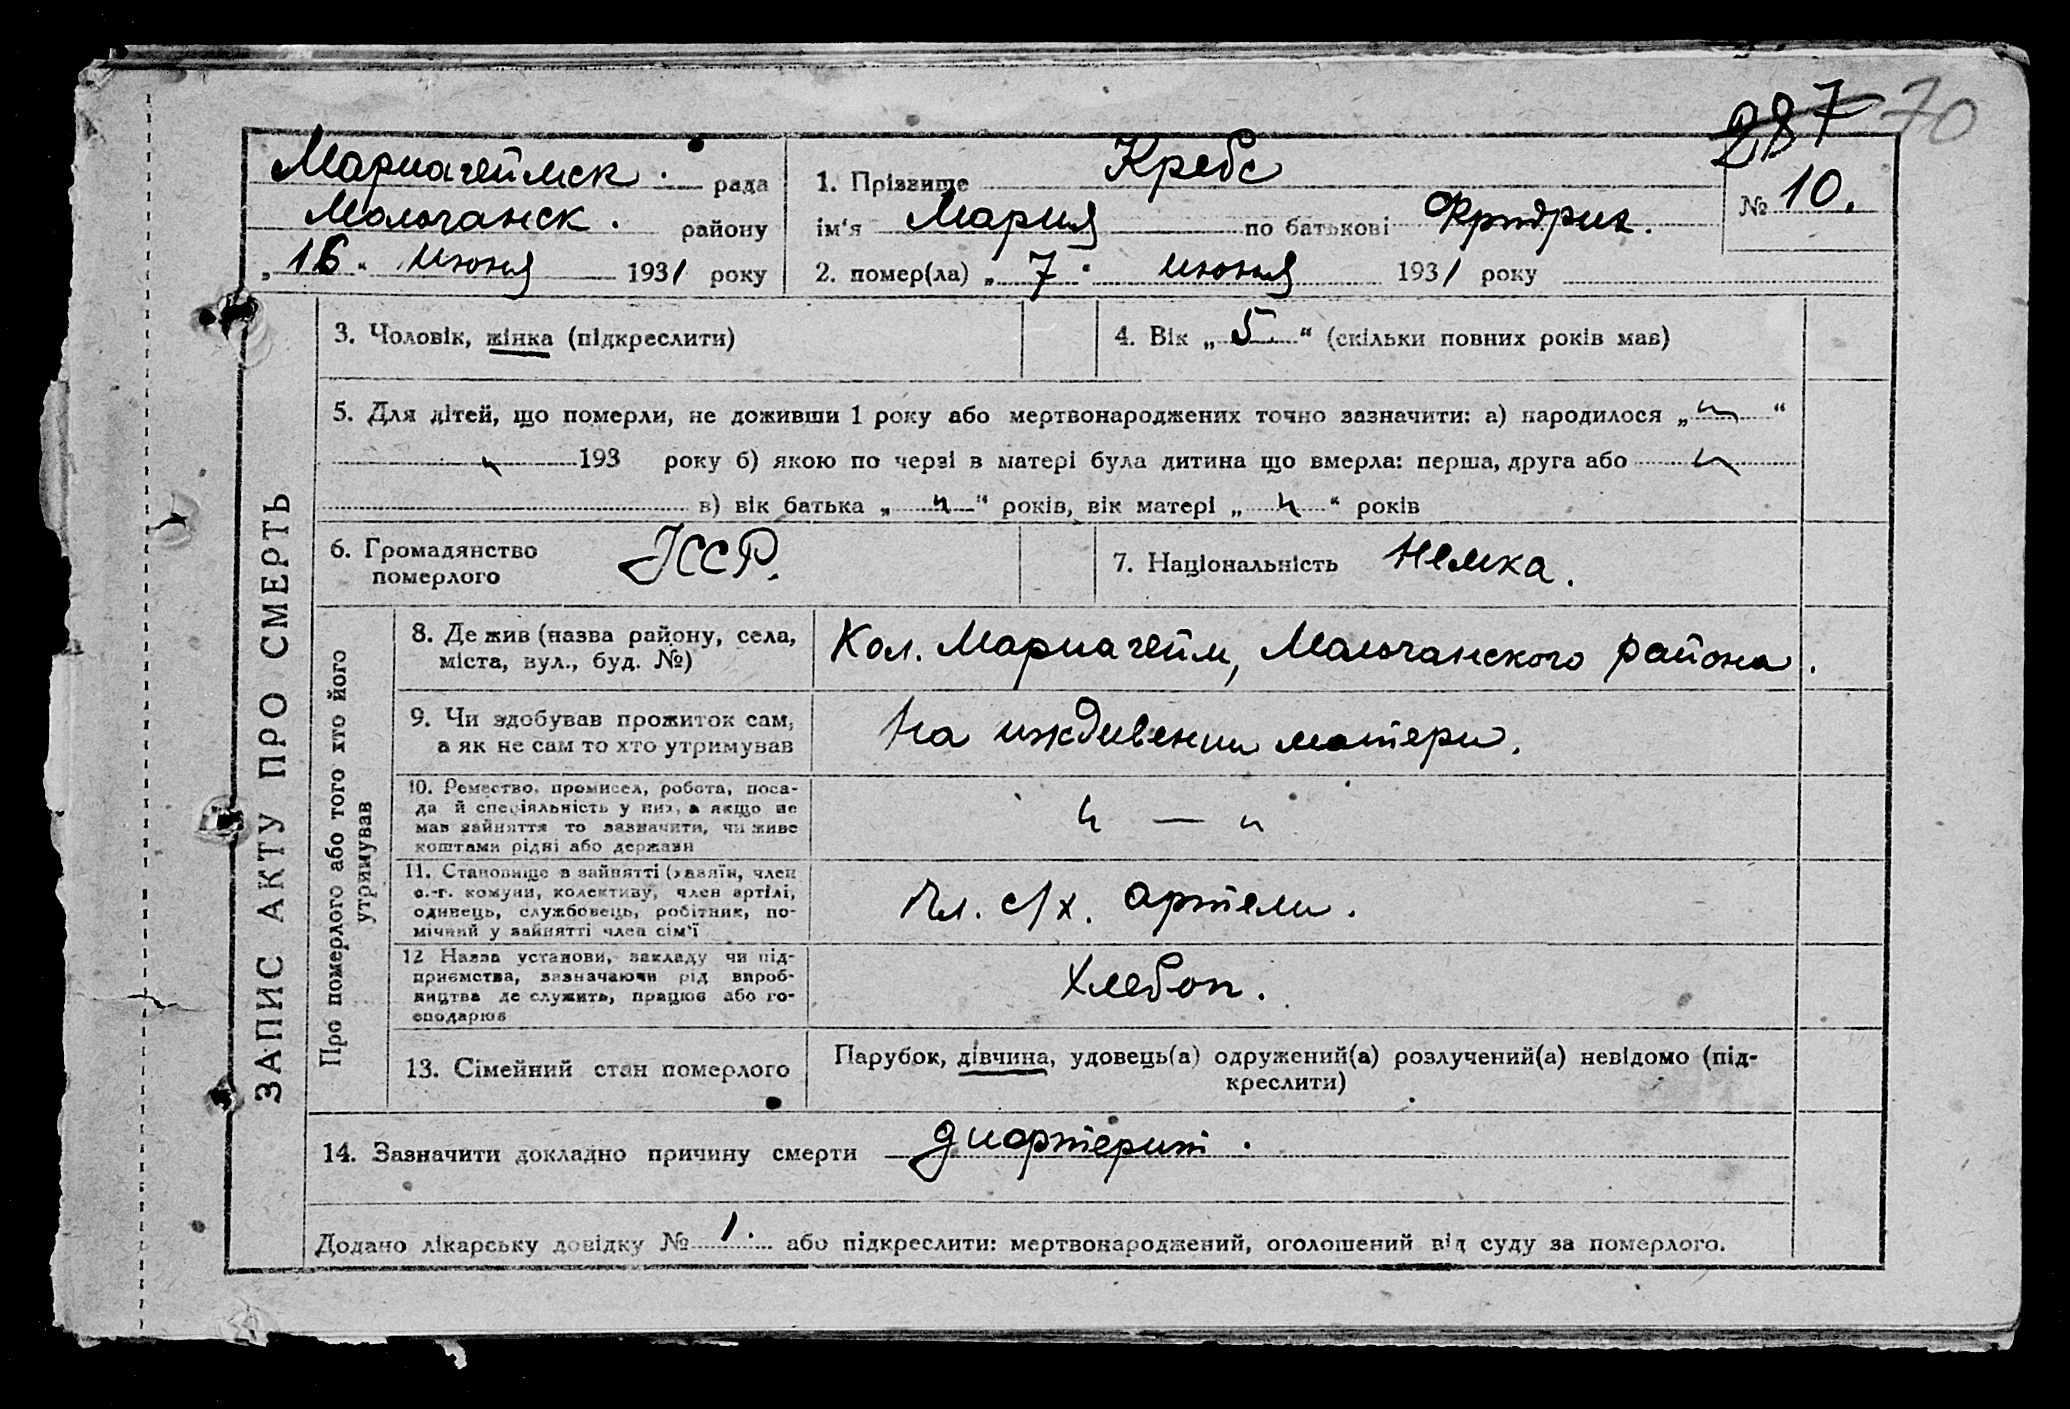 287 70
Мариагеймск. рада
Молочанск. району
„16“ июня 1931 року
1. Прізвище Кребс
ім'я Мария по батькові Фридрих.
№ 10.
2. помер(ла) „7“ июня 1931 року
ЗАПИС АКТУ ПРО СМЕРТЬ
3. Чоловік, жінка (підкреслити)
4. Вік „5“ (скільки повних років мав)
5. Для дітей, що померли, не доживши 1 року або мертвонароджених точно зазначити: а) народилося „ “
193 року б) якою по черзі в матері була дитина що вмерла: перша, друга або
в) вік батька „ч“ років, вік матері „ч“ років
6. Громадянство
померлого
УССР.
7. Національність Немка.
Про померлого або того хто його
утримував
8. Де жив (назва району, села,
міста, вул., буд. №)
Кол. Мариагейм, Молочанского района.
9. Чи здобував прожиток сам,
а як не сам то хто утримував
На иждивении матери.
10. Ремество, промисел, робота, поса-
да й спеціяльність у них, а якщо не
мав зайняття то зазначити, чи живе
коштами рідні або держави
11. Становище в зайнятті (хазяїн, член
с.-г. комуни, колективу, член артілі,
одинець, службовець, робітник, по-
мічний у зайнятті член сім'ї
Чл. с/х. артели.
12 Назва установи, закладу чи під-
приємства, зазначаючи рід вироб-
ництва де служить, працює або го-
сподарює
Хлебоп.
13. Сімейний стан померлого
Парубок, дівчина, удовець(а) одружений(а) розлучений(а) невідомо (під-
креслити)
14. Зазначити докладно причину смерти дифтерит.
Додано лікарську довідку № 1. або підкреслити: мертвонароджений, оголошений від суду за померлого.